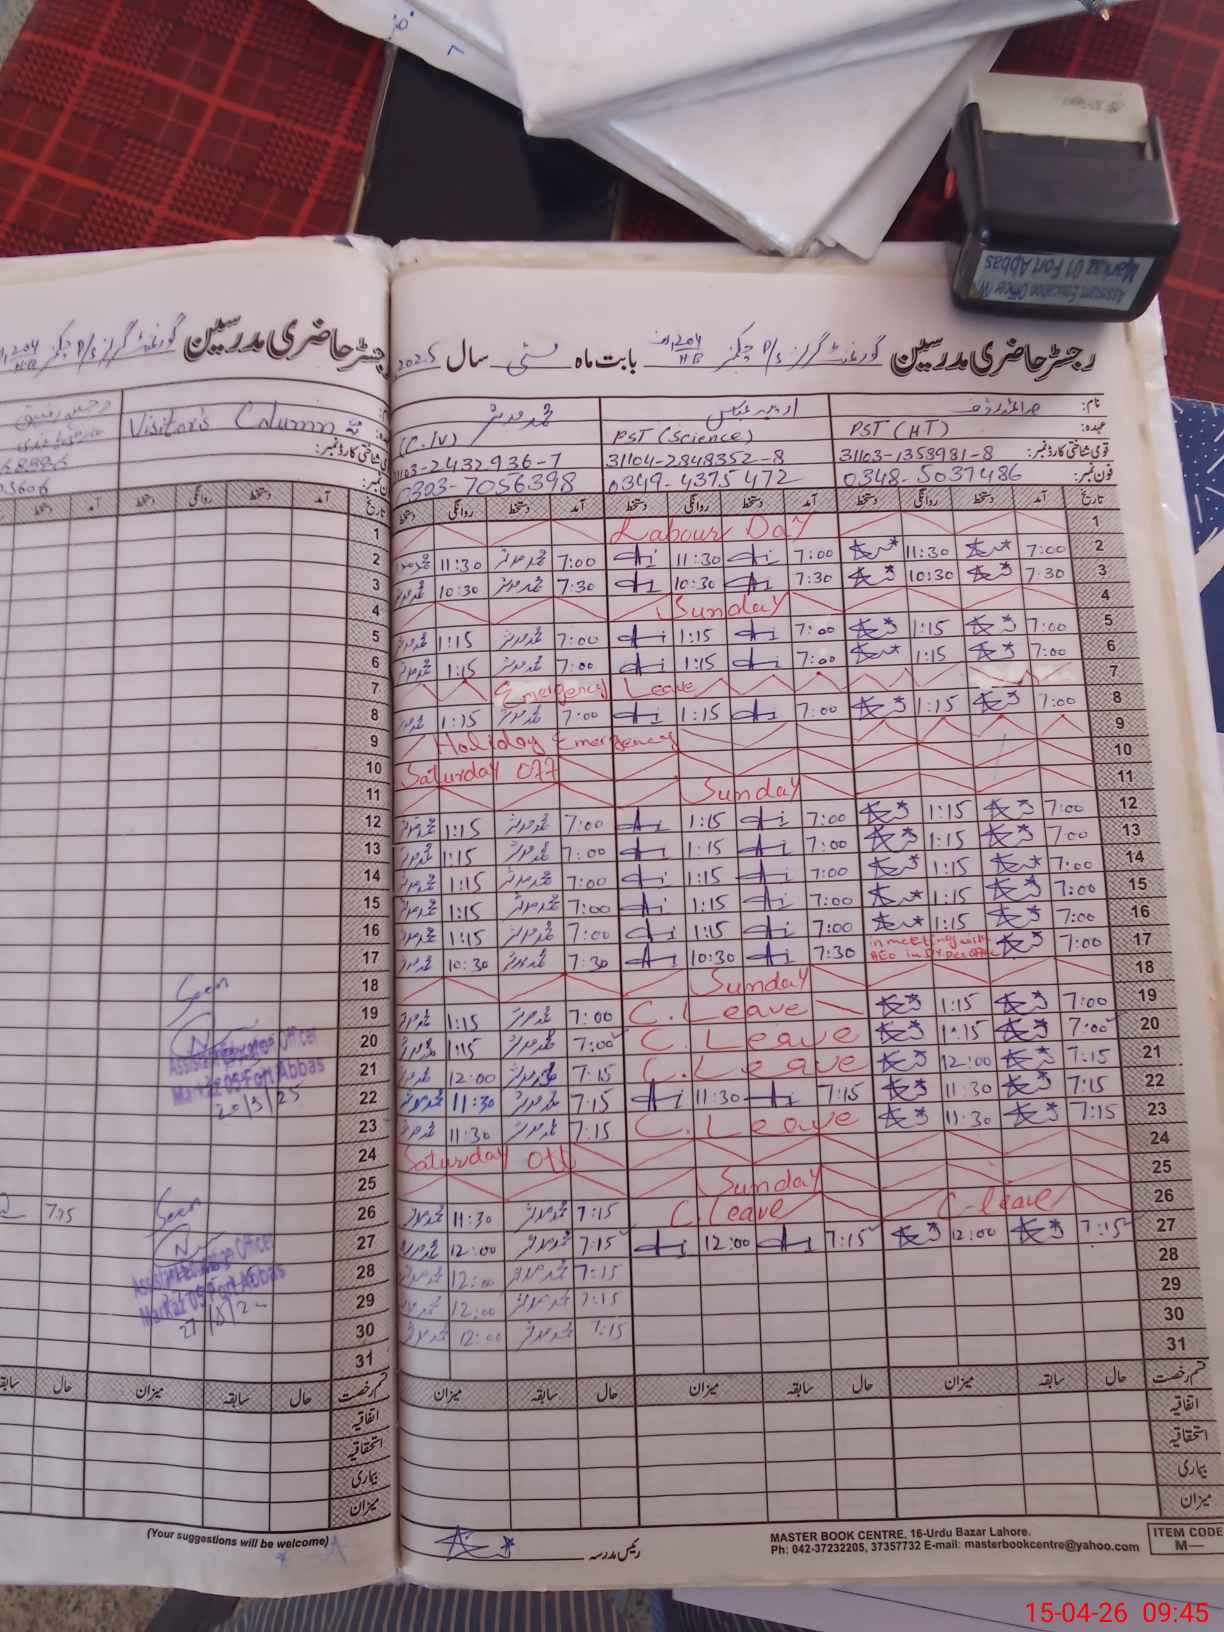 رجسٹر حاضری مدرسین گورنمنٹ گرلز P/S چکنمبر 204 H-B بابت ماہ مئی سال 2025
نام:
عہدہ: PST (HT) PST (Science) (C.IV)
قومی شناختی کارڈ نمبر: 31103-1353981-8 31104-2848352-8 31103-2432936-7
فون نمبر: 0348-5037486 0349-4375472 0303-7056398
تاریخ آمد دستخط روانگی دستخط آمد دستخط روانگی دستخط آمد دستخط روانگی دستخط
1 Labour Day
2 7:00 11:30 7:00 11:30 7:00 11:30
3 7:30 10:30 7:30 10:30 7:30 10:30
4 Sunday
5 7:00 1:15 7:00 1:15 7:00 1:15
6 7:00 1:15 7:00 1:15 7:00 1:15
7 Emergency Leave
8 7:00 1:15 7:00 1:15 7:00 1:15
9 Holiday Emergency
10 Saturday Off
11 Sunday
12 7:00 1:15 7:00 1:15 7:00 1:15
13 7:00 1:15 7:00 1:15 7:00 1:15
14 7:00 1:15 7:00 1:15 7:00 1:15
15 7:00 1:15 7:00 1:15 7:00 1:15
16 7:00 1:15 7:00 1:15 7:00 1:15
17 7:00 in meeting with AEO in 7:30 10:30 7:30 10:30
18 Sunday
19 7:00 1:15 C.Leave 7:00 1:15
20 7:00 1:15 C.Leave 7:00 1:15
21 7:15 12:00 C.Leave 7:15 12:00
22 7:15 11:30 7:15 11:30 7:15 11:30
23 7:15 11:30 C.Leave 7:15 11:30
24 Saturday Off
25 Sunday
26 C.leave C.leave 7:15 11:30
27 7:15 12:00 7:15 12:00 7:15 12:00
28 7:15 12:00
29 7:15 12:00
30 7:15 12:00
31
قسم رخصت حال سابقہ میزان حال سابقہ میزان حال سابقہ میزان
اتفاقیہ
استحقاقیہ
بیماری
میزان
رئیس مدرسہ
MASTER BOOK CENTRE, 16-Urdu Bazar Lahore.
Ph: 042-37232205, 37357732 E-mail: masterbookcentre@yahoo.com
ITEM CODE
M—
رجسٹر حاضری مدرسین گورنمنٹ گرلز P/S چکنمبر 204 H-B
Visitor's Column
تاریخ آمد دستخط روانگی دستخط آمد دستخط
1
2
3
4
5
6
7
8
9
10
11
12
13
14
15
16
17
18
19
20
21
22
23
24
25
26
27
28
29
30
31
Seen
Assistant Education Officer
Markaz 05 Fort Abbas
20/5/25
7:15
Seen
Assistant Education Officer
Markaz 05 Fort Abbas
قسم رخصت حال سابقہ میزان حال سابقہ
اتفاقیہ
استحقاقیہ
بیماری
میزان
(Your suggestions will be welcome)
Assistant Education Officer
Markaz 01 Fort Abbas
15-04-26 09:45